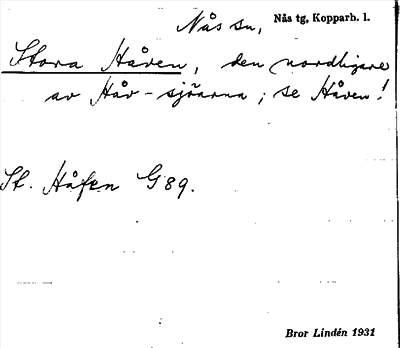 Nås sn, Nås tg, Kopparb. l.
Stora Håven, den nordligare
av Håv-sjöarna; se Håven!
St. Håfen G 89.
Bror Lindén 1931